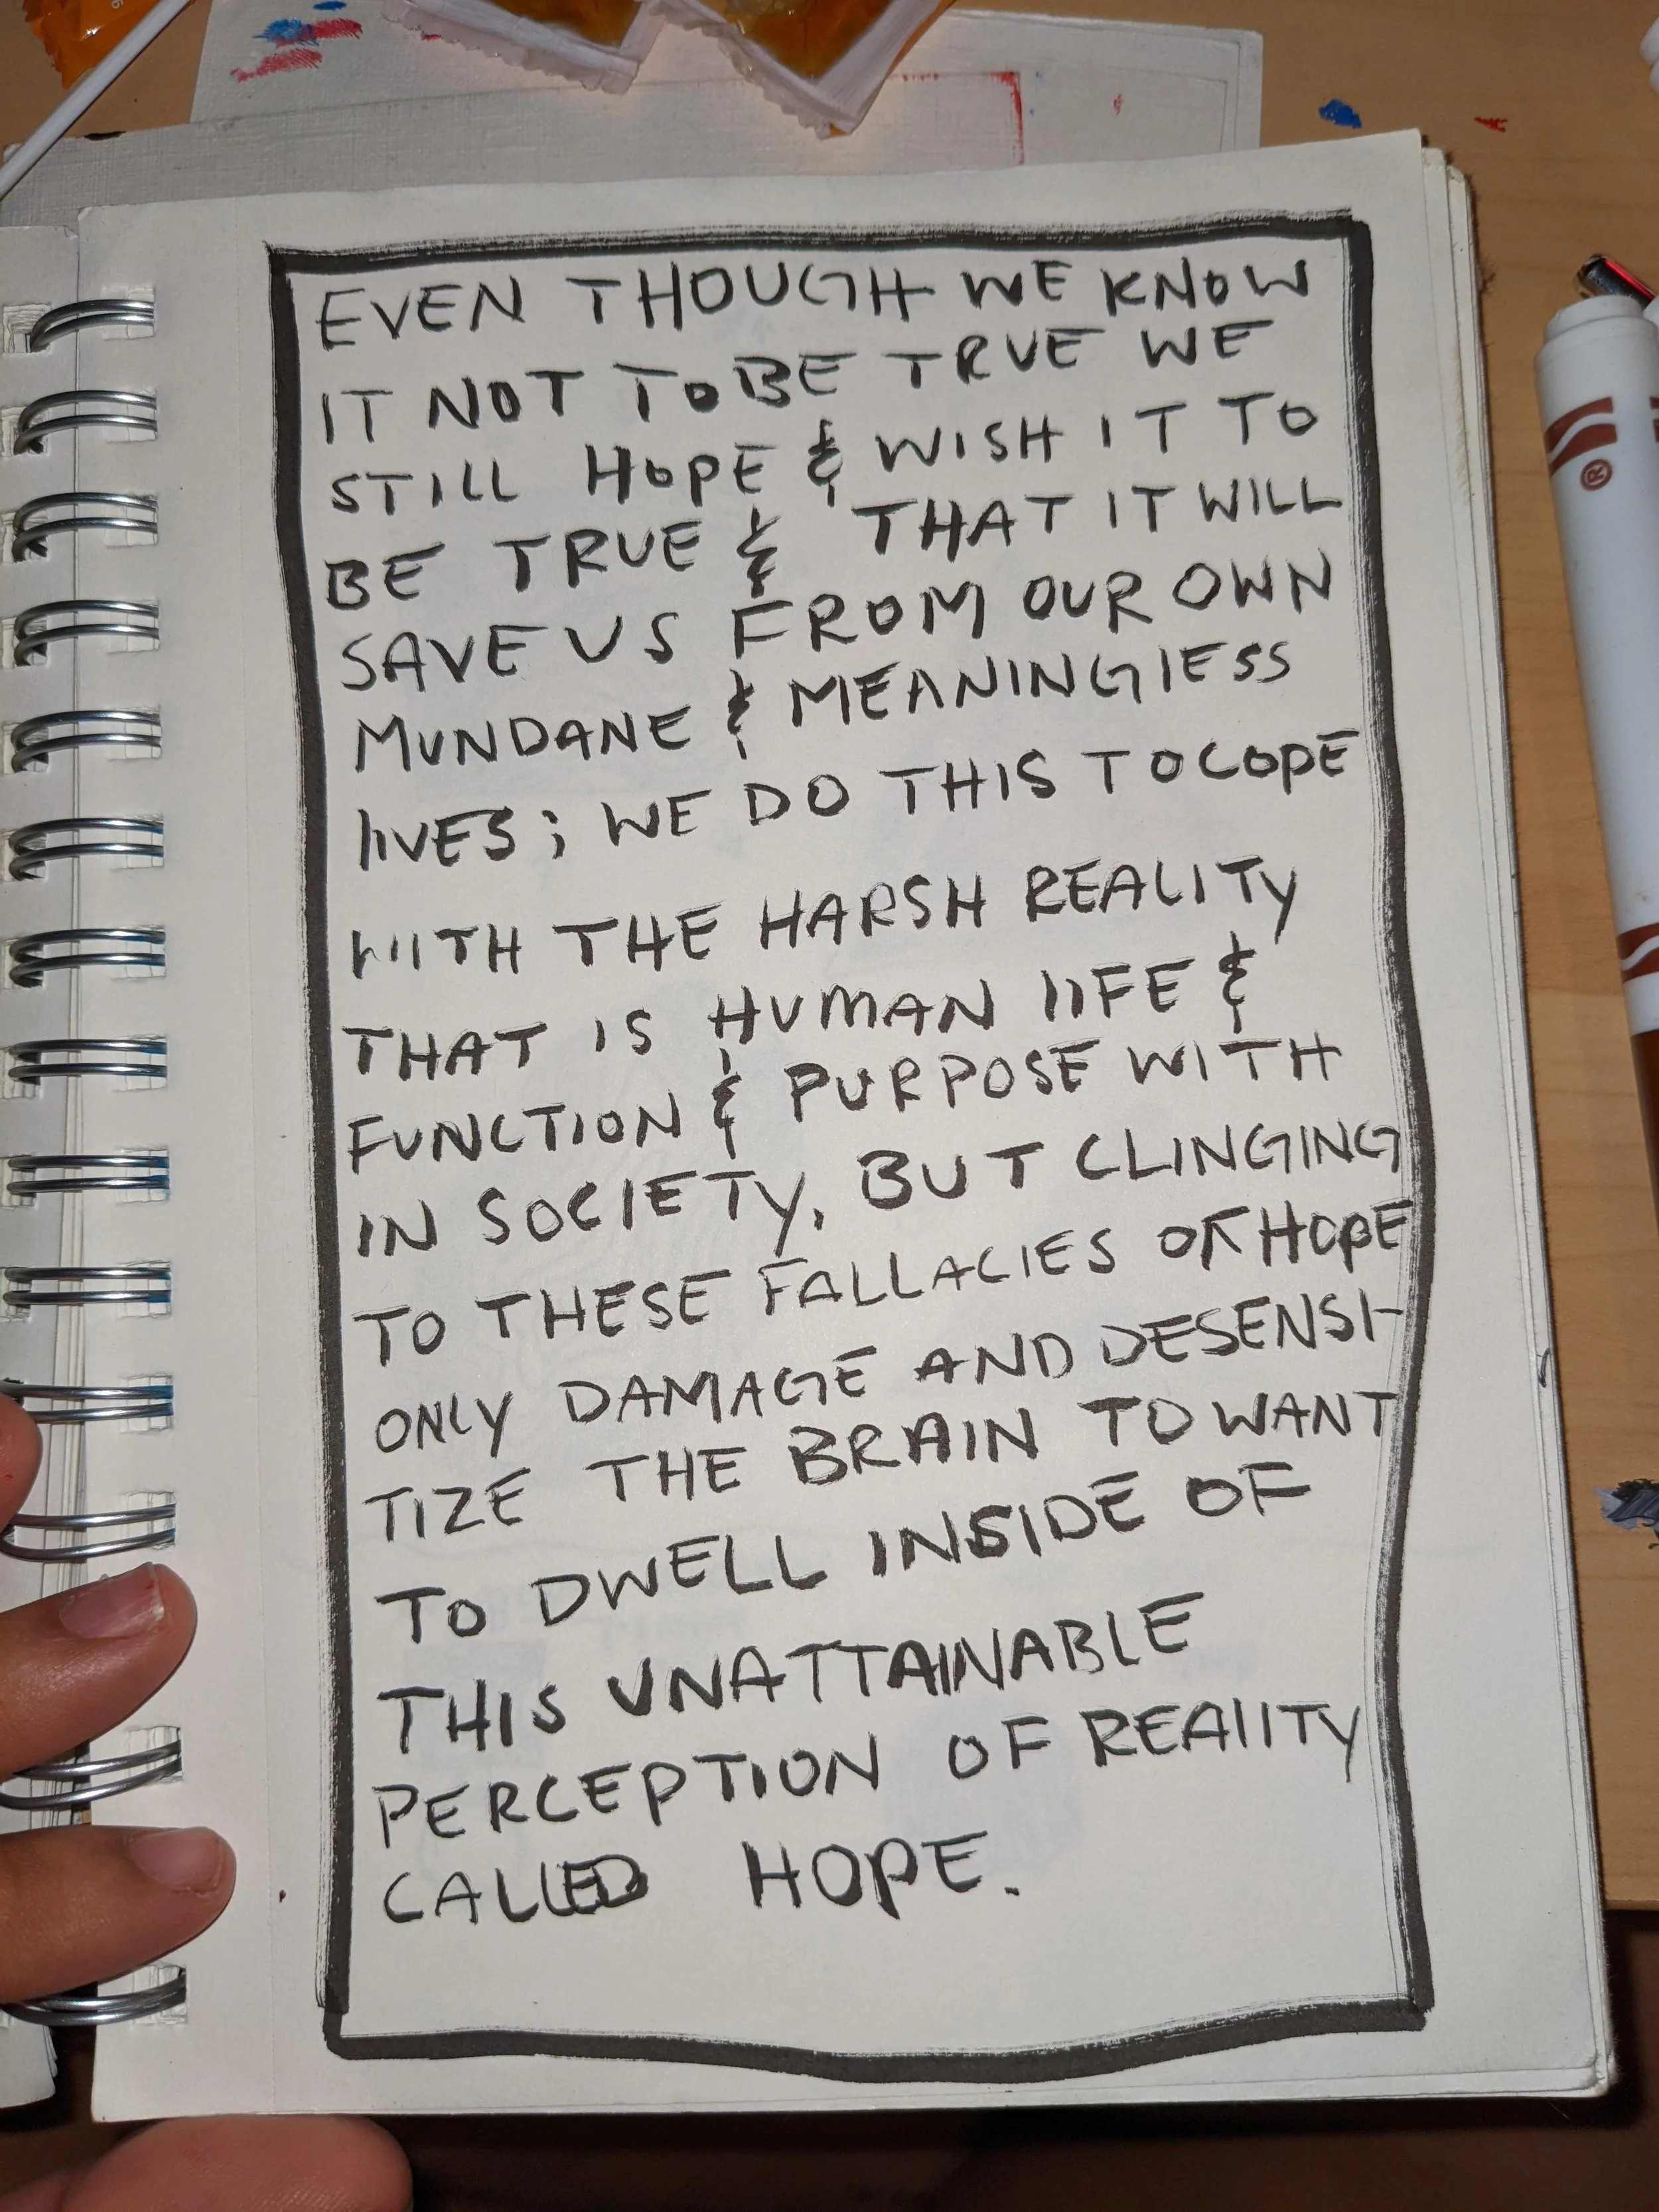 EVEN THOUGH WE KNOW
IT NOT TO BE TRUE WE
STILL HOPE & WISH IT TO
BE TRUE & THAT IT WILL
SAVE US FROM OUR OWN
MUNDANE & MEANINGLESS
LIVES; WE DO THIS TO COPE
WITH THE HARSH REALITY
THAT IS HUMAN LIFE &
FUNCTION & PURPOSE WITH
IN SOCIETY, BUT CLINGING
TO THESE FALLACIES OF HOPE
ONLY DAMAGE AND DESENSI-
TIZE THE BRAIN TO WANT
TO DWELL INSIDE OF
THIS UNATTAINABLE
PERCEPTION OF REALITY
CALLED HOPE.
®